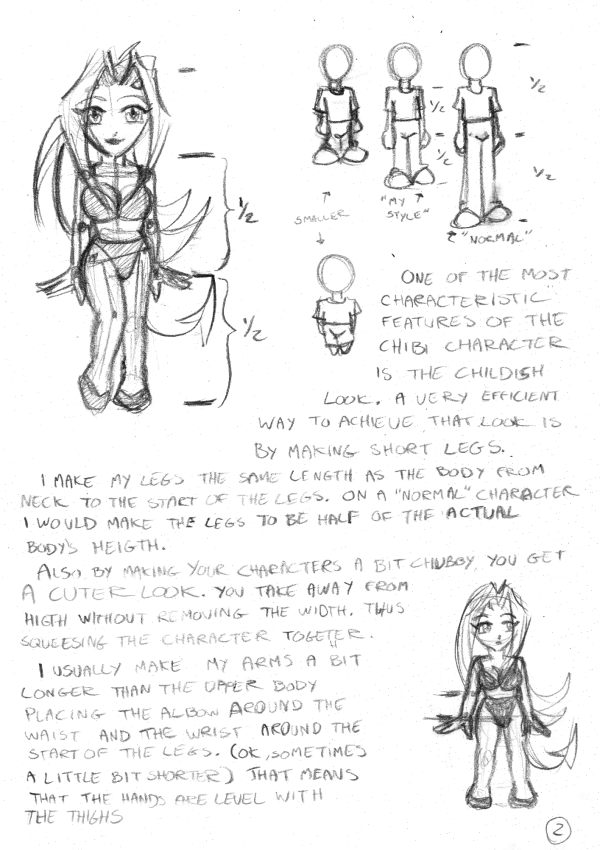 1/2
1/2
1/2
1/2
1/2
1/2
SMALLER
"MY
STYLE"
"NORMAL"
ONE OF THE MOST
CHARACTERISTIC
FEATURES OF THE
CHIBI CHARACTER
IS THE CHILDISH
LOOK. A VERY EFFICIENT
WAY TO ACHIEVE THAT LOOK IS
BY MAKING SHORT LEGS.
I MAKE MY LEGS THE SAME LENGTH AS THE BODY FROM
NECK TO THE START OF THE LEGS. ON A "NORMAL" CHARACTER
I WOULD MAKE THE LEGS TO BE HALF OF THE ACTUAL
BODY'S HEIGTH.
ALSO BY MAKING YOUR CHARACTERS A BIT CHUBBY YOU GET
A CUTER LOOK. YOU TAKE AWAY FROM
HIGTH WITHOUT REMOVING THE WIDTH. THUS
SQUEESING THE CHARACTER TOGETER.
I USUALLY MAKE MY ARMS A BIT
LONGER THAN THE UPPER BODY
PLACING THE ALBOW AROUND THE
WAIST AND THE WRIST AROUND THE
START OF THE LEGS. (OK, SOMETIMES
A LITTLE BIT SHORTER) THAT MEANS
THAT THE HANDS ARE LEVEL WITH
THE THIGHS
2